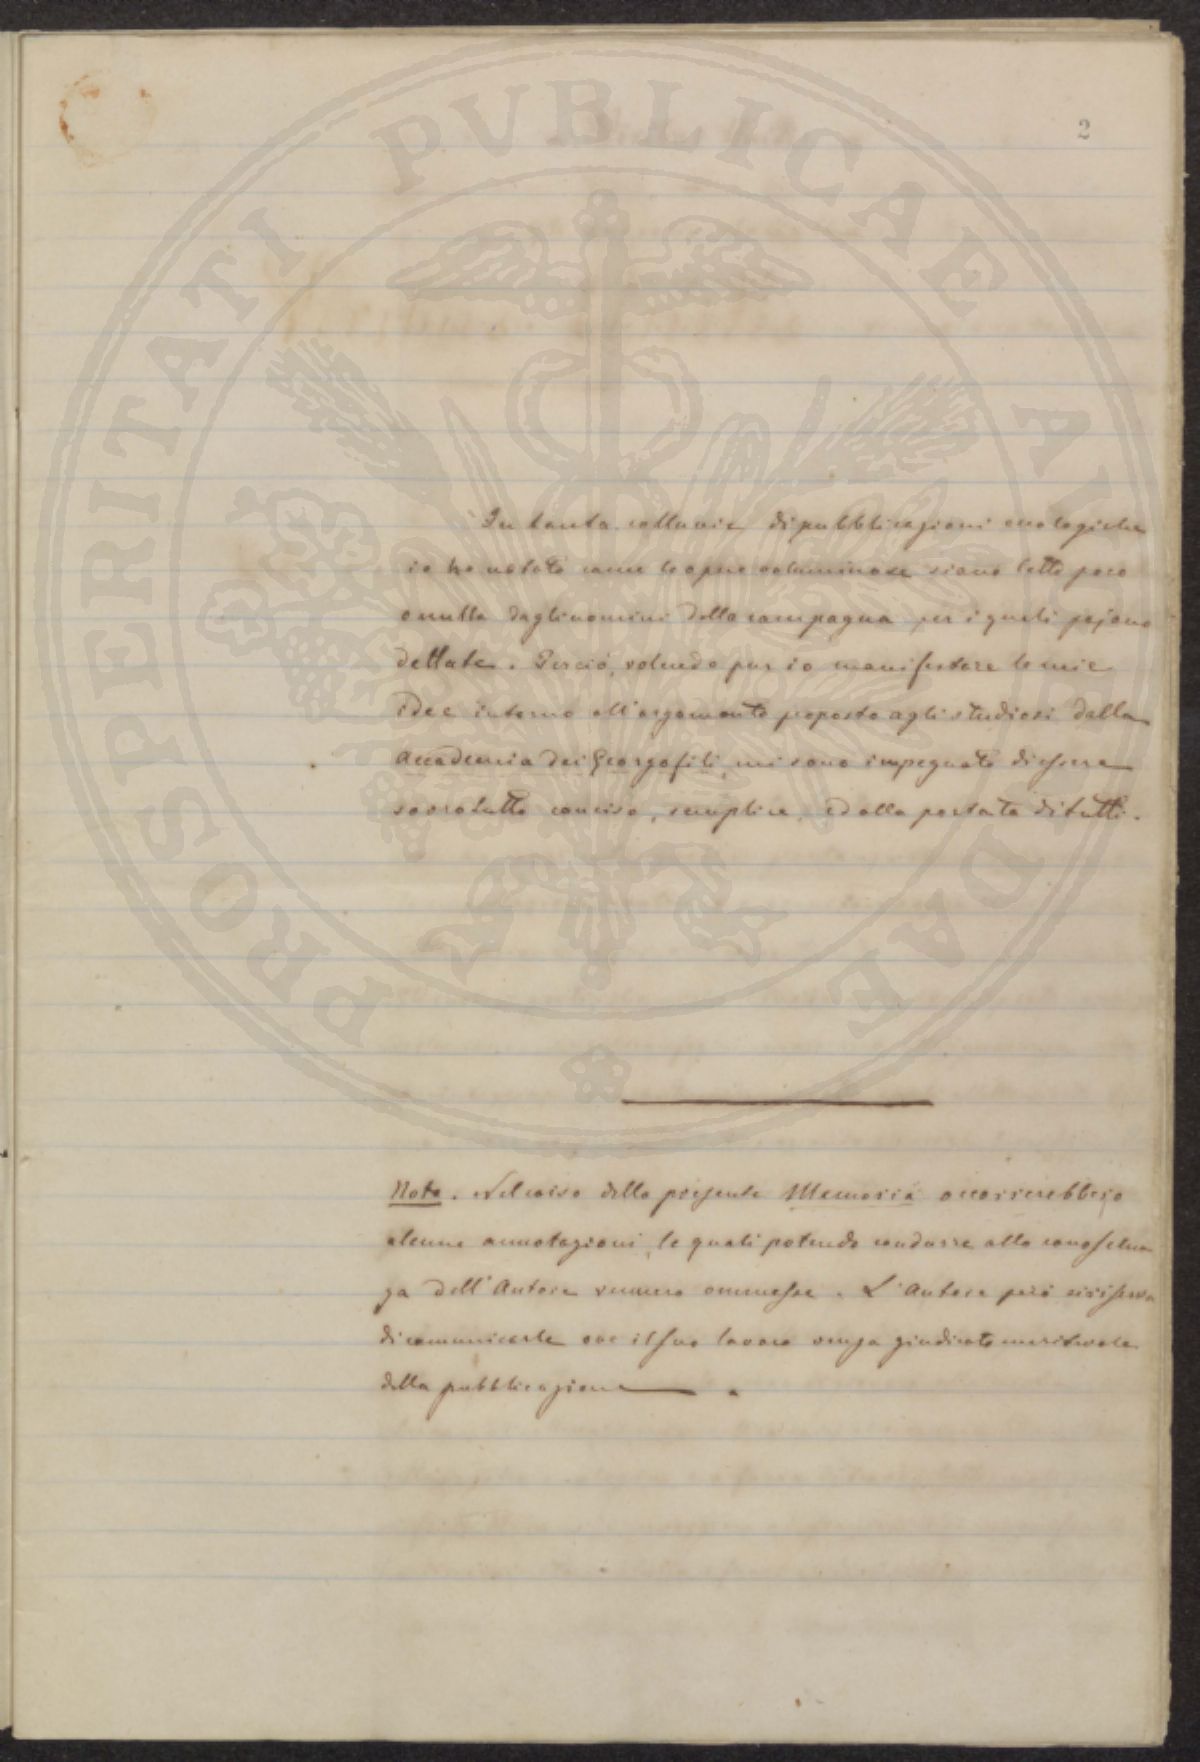 PROSPERITATI PUBLICAE AUGENDAE
2
In tanta colluvie di pubblicazioni enologiche
io ho notato come le opere voluminose siano lette poco
o nulla dagli uomini della campagna per i quali pajono
dettate. Perciò, volendo pur io manifestare le mie
idee intorno all'argomento proposto agli studiosi dalla
Accademia dei Georgofili, mi sono impegnato di essere
sovratutto conciso, semplice, ed alla portata di tutti.
Nota. Nel corso della presente Memoria occorrerebbero
alcune annotazioni, le quali potendo condurre alla conoscen
za dell'Autore vennero ommesse. L'Autore però si riserva
di comunicarle ove il suo lavoro venga giudicato meritevole
della pubblicazione.